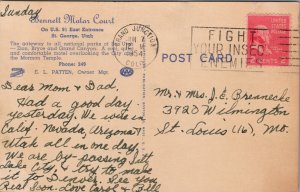 Sunday
Bennett Motor Court
On U.S. 91 East Entrance
St. George, Utah
The gateway to all national parks of
Zion, Bryce and Grand Canyon.
the Mormon Temple.
Phone: 249
E. L. PATTEN, Owner Mgr.
GRAND JUNCTION
1954
COLO.
FIGHT
YOUR INSECT
ENEMIES
POST CARD
Dear Mom & Dad,
Had a good day
yesterday. We were in
Calif. Nevada, Arizona &
Utah all in one day.
We are by passing Salt
Lake City & try to make
it to Denver. See you
Real Soon. Love Carol & Bill
Mr. & Mrs. J.E. Brennecke
3920 Wilmington
St. Louis (16) Mo.